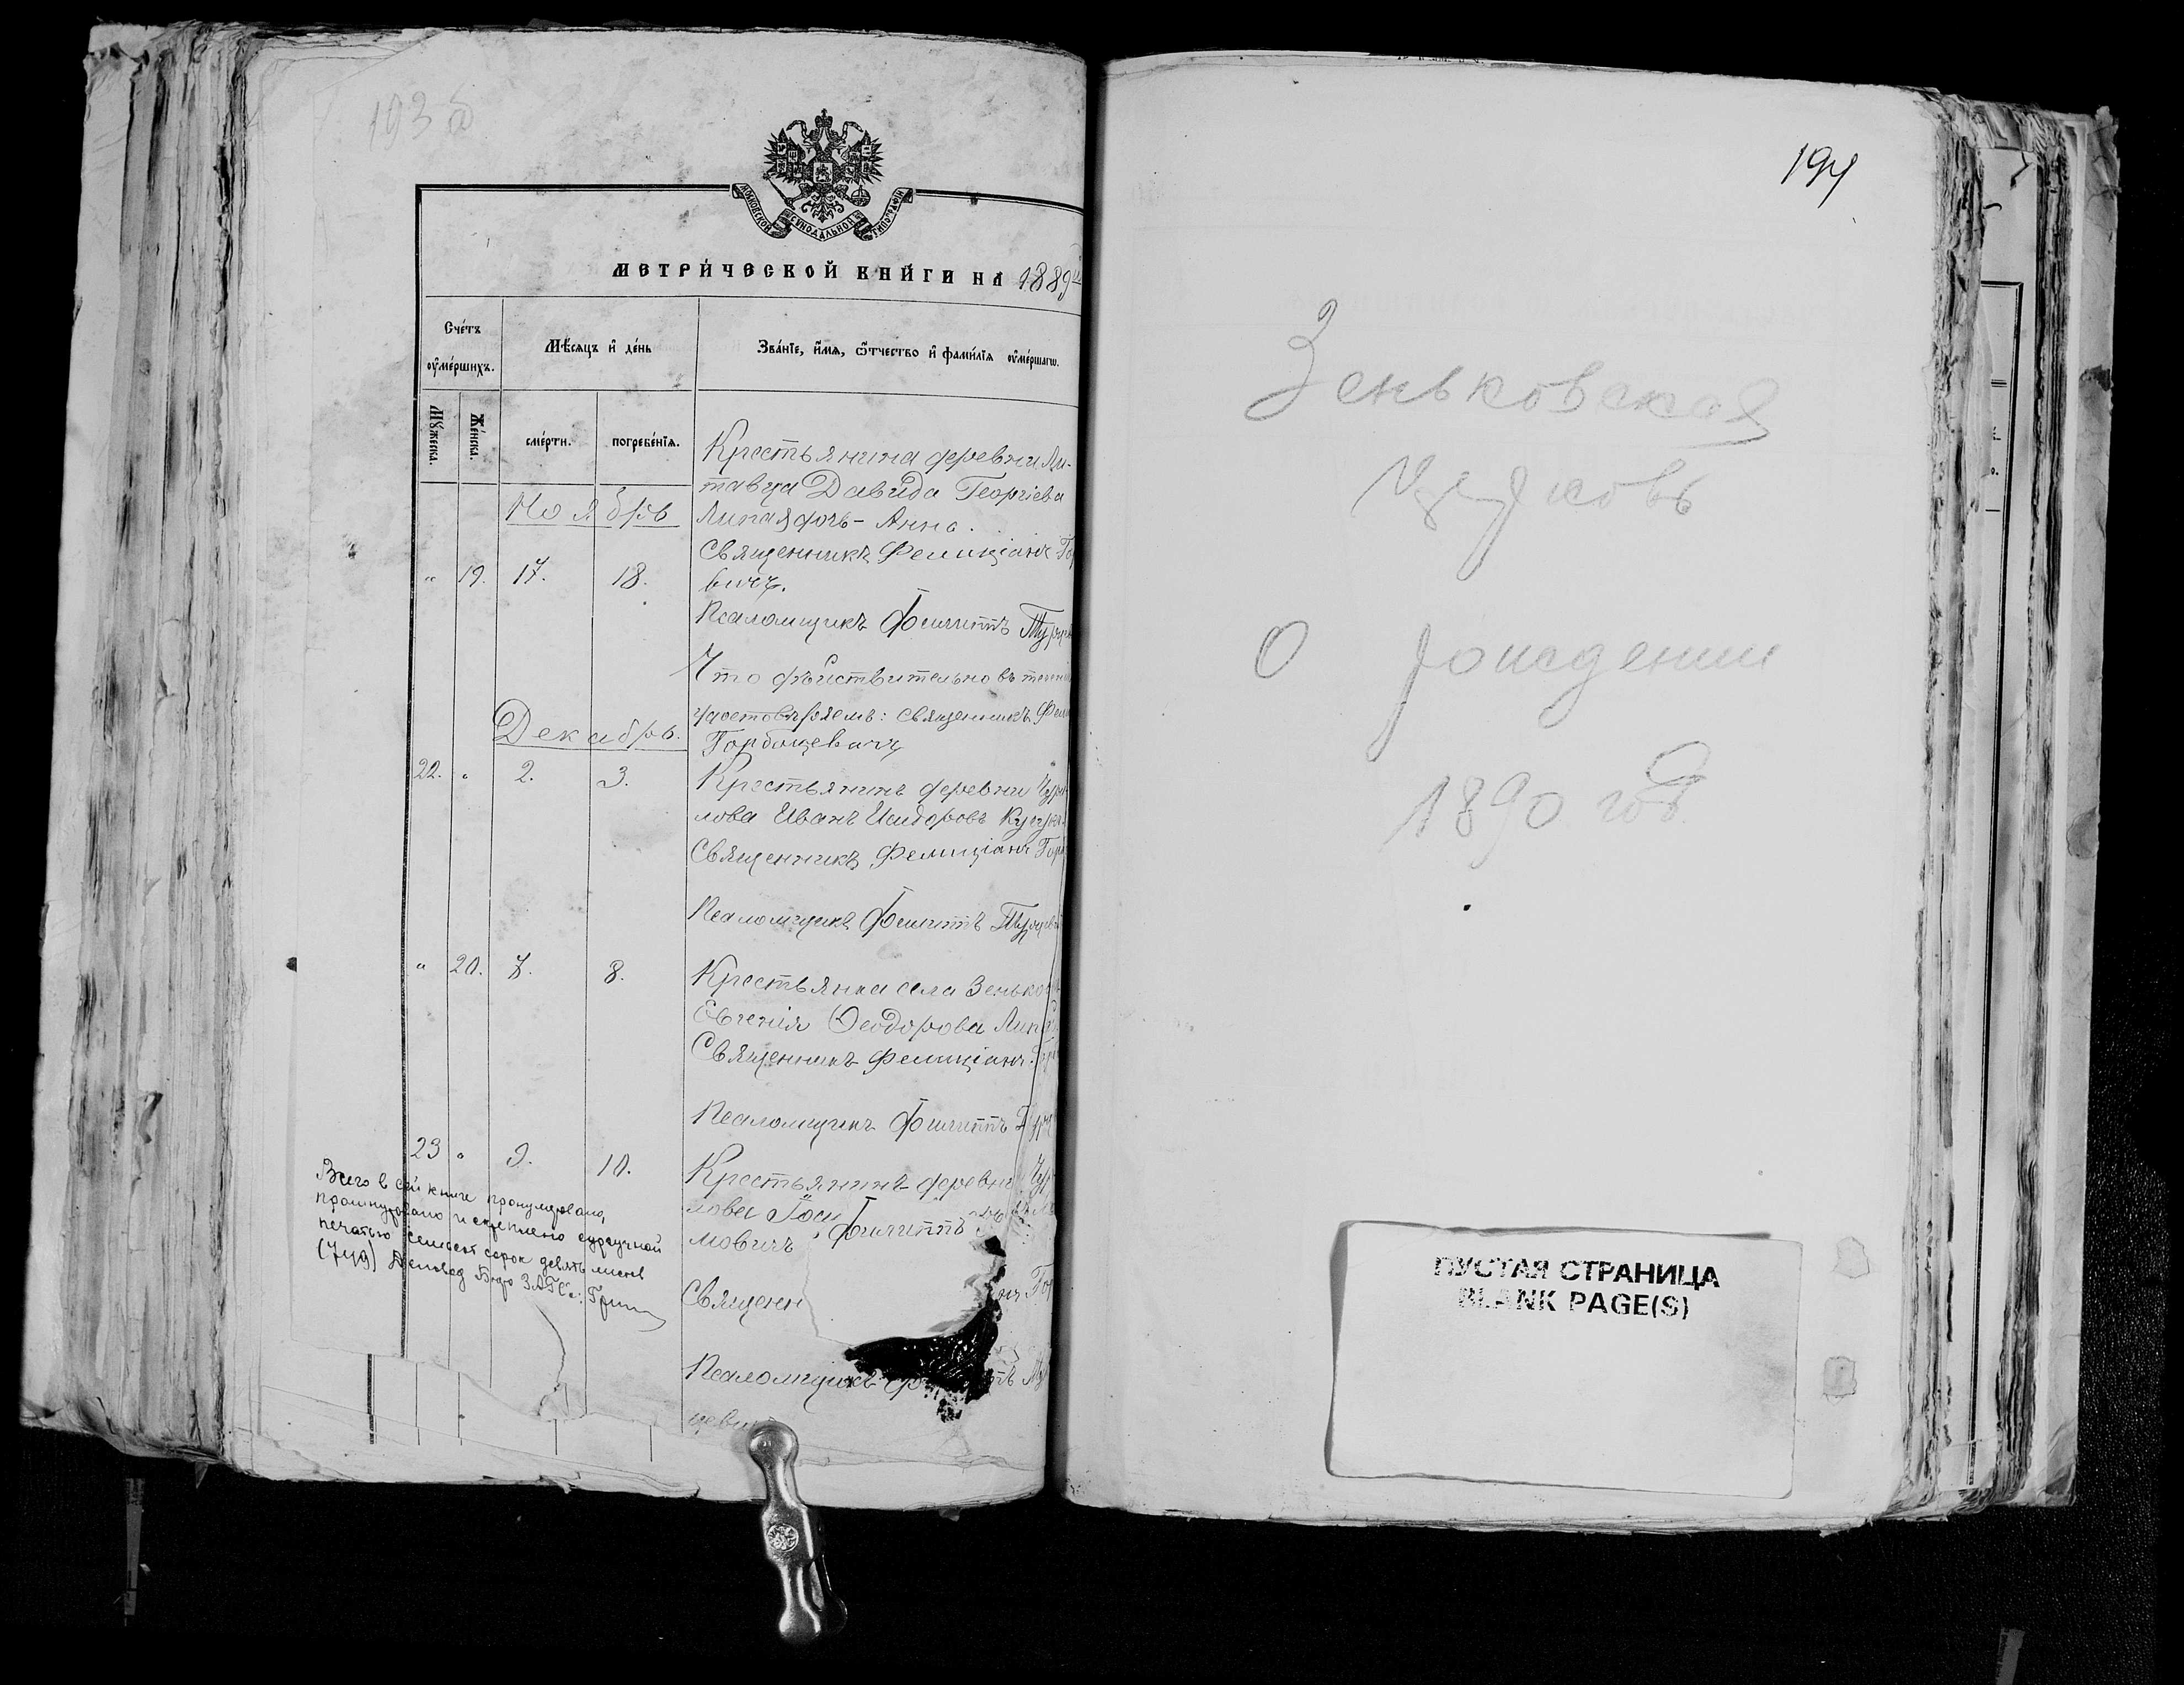 193б
МОСКОВСКОЙ СѴНОДАЛЬНОЙ ТИПОГРАФІИ
МЕТРИ́ЧЕСКОЙ КНИ́ГИ НА 1889й
Сче́тъ ᲂу҆ме́ршихъ.
Мѣ́сяцъ и҆ де́нь
Зва́нїе, и҆́мя, ѻ҆́тчество и҆ фами́лїя ᲂу҆ме́ршагѡ.
Мꙋ́жеска.
Же́нска.
сме́рти.
погребе́нїя.
Ноябрь
" 19. 17. 18.
Крестьянина деревни Ли-
тавца Давида Георгіева
Липая дочь - Анна.
Священникъ Фелиціанъ Гор
вичъ.
Псаломщикъ Филиппъ Турце
Что дѣйствительно въ течені
удостовѣряемъ: священникъ Фели
Горбацевичъ
Декабрь.
22. " 2. 3.
Крестьянинъ деревни Чури-
лова Иванъ Исидоровъ
Священникъ Фелиціанъ Горб
Псаломщикъ Филиппъ Турцеви
" 20. 7. 8.
Крестьянка села Зеньков
Евгенія Ѳеодорова Лип
Священникъ Фелиціанъ Гор
Псаломщикъ Филиппъ Турц
23 " 9. 10.
Крестьянинъ деревни Чур
лова Іоси Филиппъ
мовичъ
Священн нъ Гор
Псаломщикъ Ф ппъ Ту
цеви
Всего в сей книге пронумеровано,
прошнуровано и скреплено сургучной
печатью семьсот сорок девять листов
(749) Деловод Бюро ЗАГСа: Гриц
194
Зеньковская
церковь
О рождении
1890 год
ПУСТАЯ СТРАНИЦА
BLANK PAGE(S)